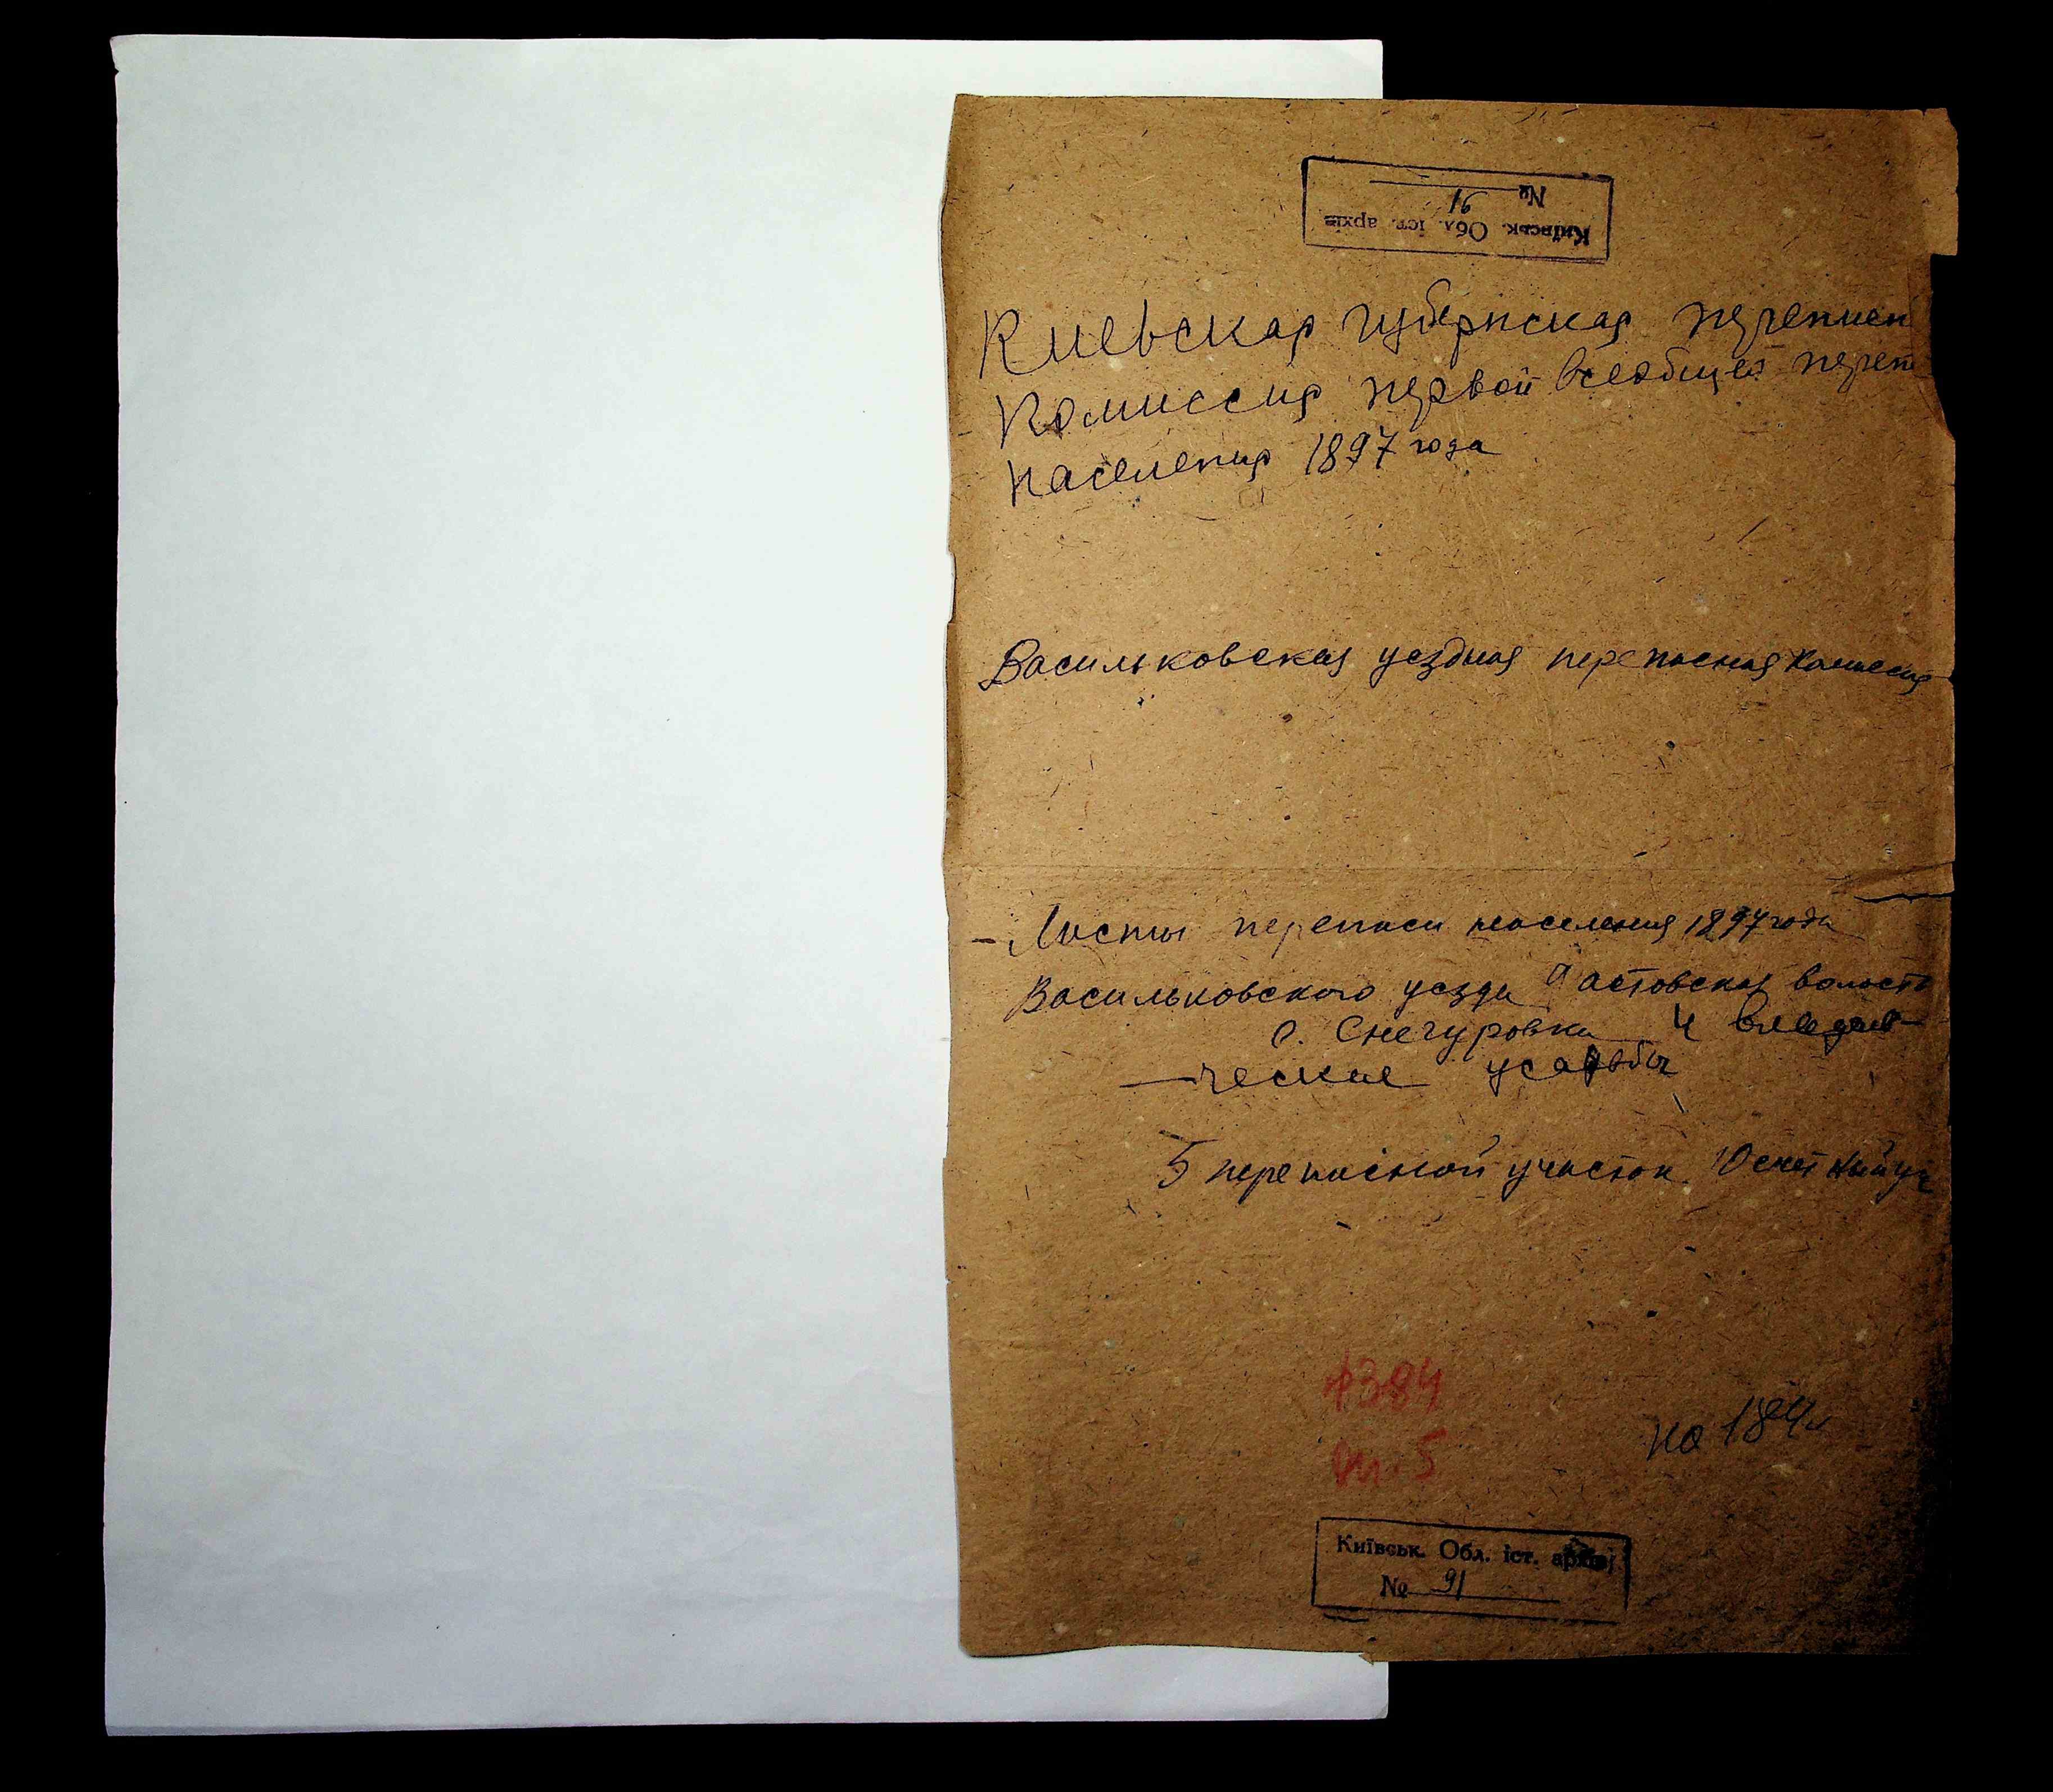 Київськ. Обл. іст. архів
№ 91
Киевская губернская переписн
Комиссия первой всеобщей переп
населения 1897 года
Васильковская уездная переписная комиссия
- Листы переписи населения 1897 года
Васильковского уезда Фастовская волость
с. Снегуровка и владел-
-ческие усадьбы
5 переписной участок 10 счетный уч
1384
оп. 5
на 184 л
Київськ. Обл. іст. архів
№ 91